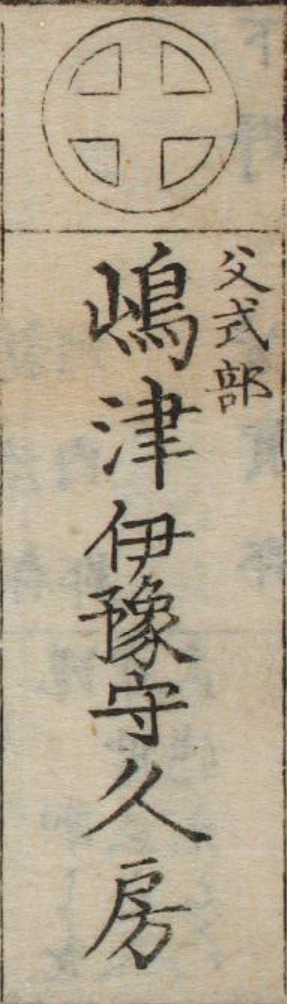 父式部
嶋津伊豫守久房